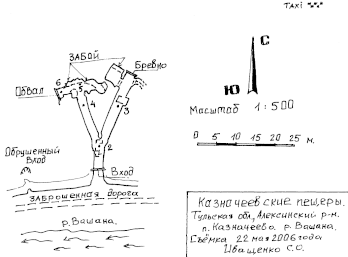 TAXI
ЗАБОЙ
Бревно
6
5
Обвал
4
3
С
Ю
Масштаб 1:500
0 5 10 15 20 25 м.
2
Обрушенный
Вход
1
Вход
Заброшенная дорога
р. Вашана.
Казначеевские пещеры.
Тульская обл, Алексинский р-н.
п. Казначеево. р. Вашана.
Съёмка 22 мая 2006 года
Иващенко С.О.